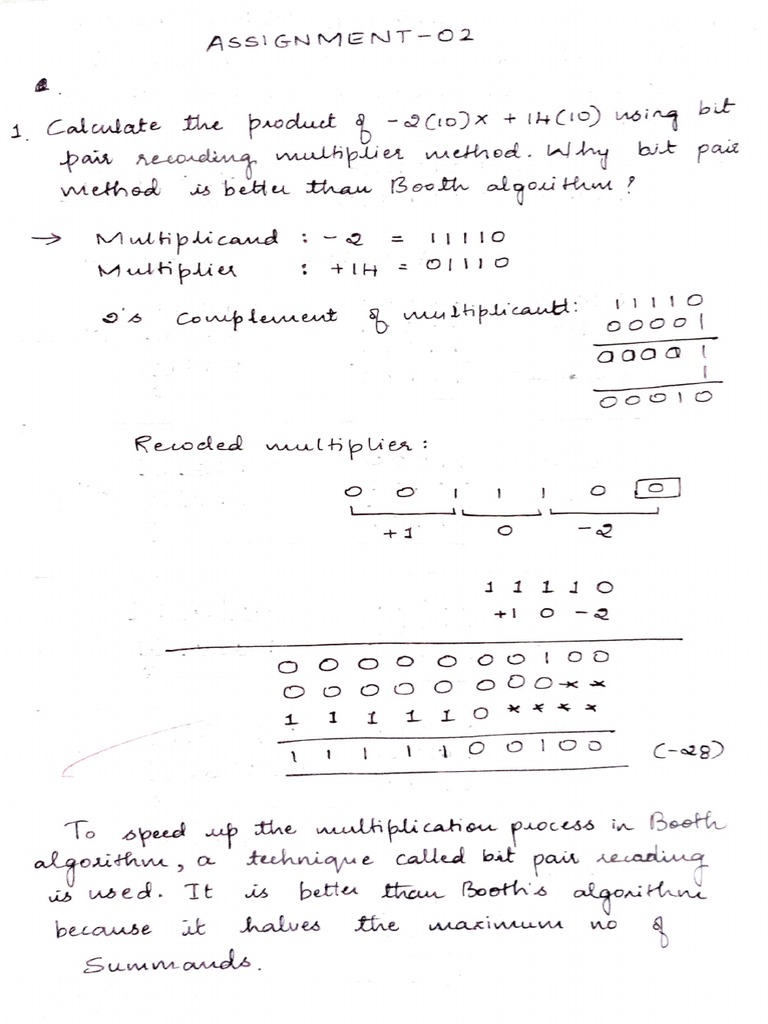 ASSIGNMENT-02
1. Calculate the product of -2(10)x +14(10) using bit
pair recording multiplier method. Why bit pair
method is better than Booth algorithm?
→ Multiplicand : -2 = 11110
Multiplier : +14 = 01110
2's complement of multiplicand: 11110
00001
00001
1
00010
Recoded multiplier:
0 0 1 1 1 0 0
+1 0 -2
1 1 1 1 0
+1 0 -2
0 0 0 0 0 0 0 1 0 0
0 0 0 0 0 0 0 0 * *
1 1 1 1 1 0 * * * *
1 1 1 1 1 0 0 1 0 0 (-28)
To speed up the multiplication process in Booth
algorithm, a technique called bit pair recoding
is used. It is better than Booth's algorithm
because it halves the maximum no of
Summands.